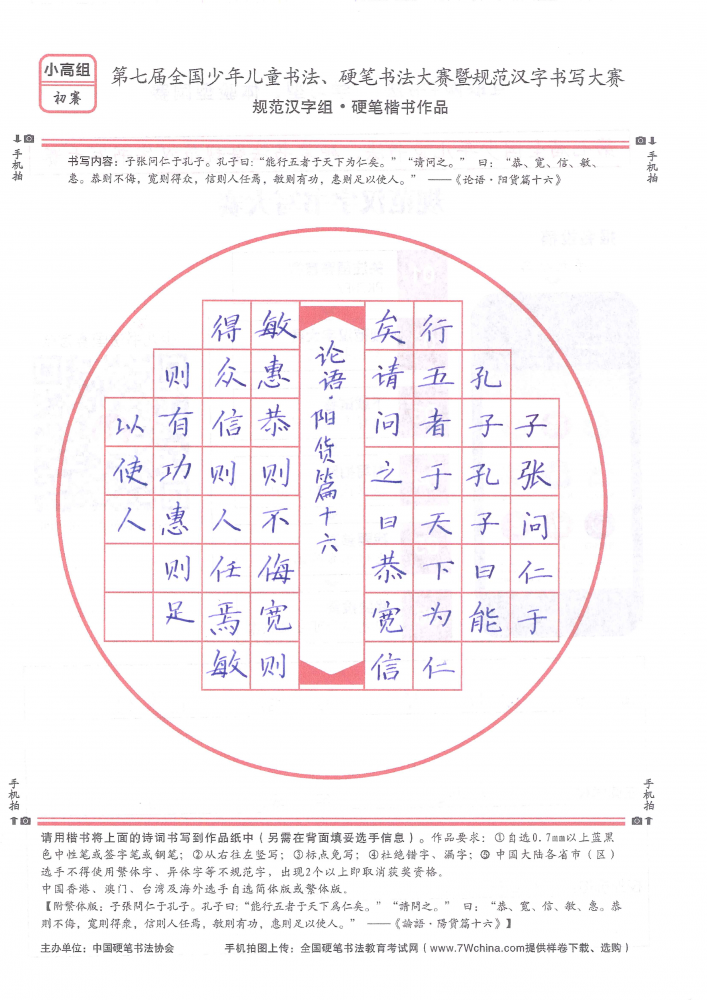 小高组
初赛
第七届全国少年儿童书法、硬笔书法大赛暨规范汉字书写大赛
规范汉字组·硬笔楷书作品
手机拍
手机拍
书写内容：子张问仁于孔子。孔子曰：“能行五者于天下为仁矣。”“请问之。” 曰：“恭、宽、信、敏、
惠。恭则不侮，宽则得众，信则人任焉，敏则有功，惠则足以使人。” ——《论语·阳货篇十六》
子张问仁于
孔子孔子曰能
行五者于天下为仁
矣请问之曰恭宽信
论语·阳货篇十六
敏惠恭则不侮宽则
得众信则人任焉敏
则有功惠则足
以使人
手机拍
手机拍
请用楷书将上面的诗词书写到作品纸中（另需在背面填妥选手信息）。作品要求：①自选0.7mm以上蓝黑
色中性笔或签字笔或钢笔；②从右往左竖写；③标点免写；④杜绝错字、漏字；⑤ 中国大陆各省市（区）
选手不得使用繁体字、异体字等不规范字，出现2个以上即取消获奖资格。
中国香港、澳门、台湾及海外选手自选简体版或繁体版。
【附繁体版：子張問仁于孔子。孔子曰：“能行五者于天下爲仁矣。”“請問之。” 曰：“恭、寬、信、敏、惠。恭
則不侮，寬則得衆，信則人任焉，敏則有功，惠則足以使人。” ——《論語·陽貨篇十六》】
主办单位：中国硬笔书法协会 手机拍图上传：全国硬笔书法教育考试网（www.7Wchina.com提供样卷下载、选购）